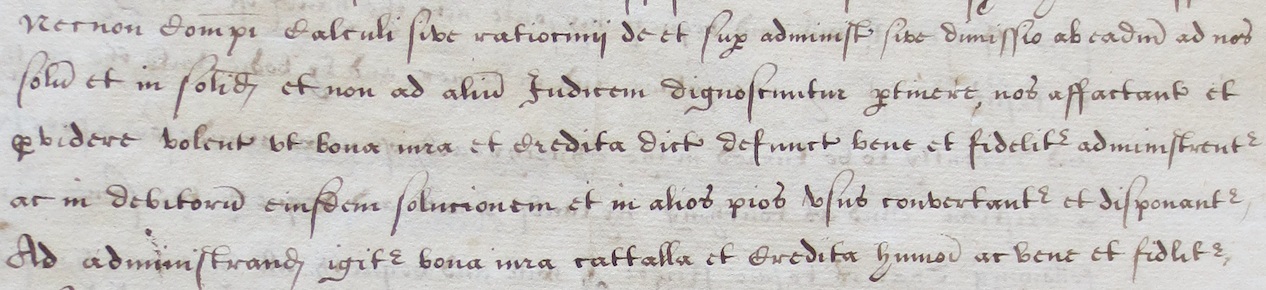 Necnon Compi Calculi sive ratiocinij de et sup administ sive dimissio ab eadm ad nos
solu et in solid et non ad aliu Judicem dignoscuntur ptinere, nos affectant et
pvidere volent ut bona iura et Credita dict defunct bene et fidelitr administrentr
ac in debitoru eiusdem solucionem et in alios pios usus convertantr et disponantr,
Ad administrand igitr bona iura cattalla et Credita humoi ac bene et fidlitr,